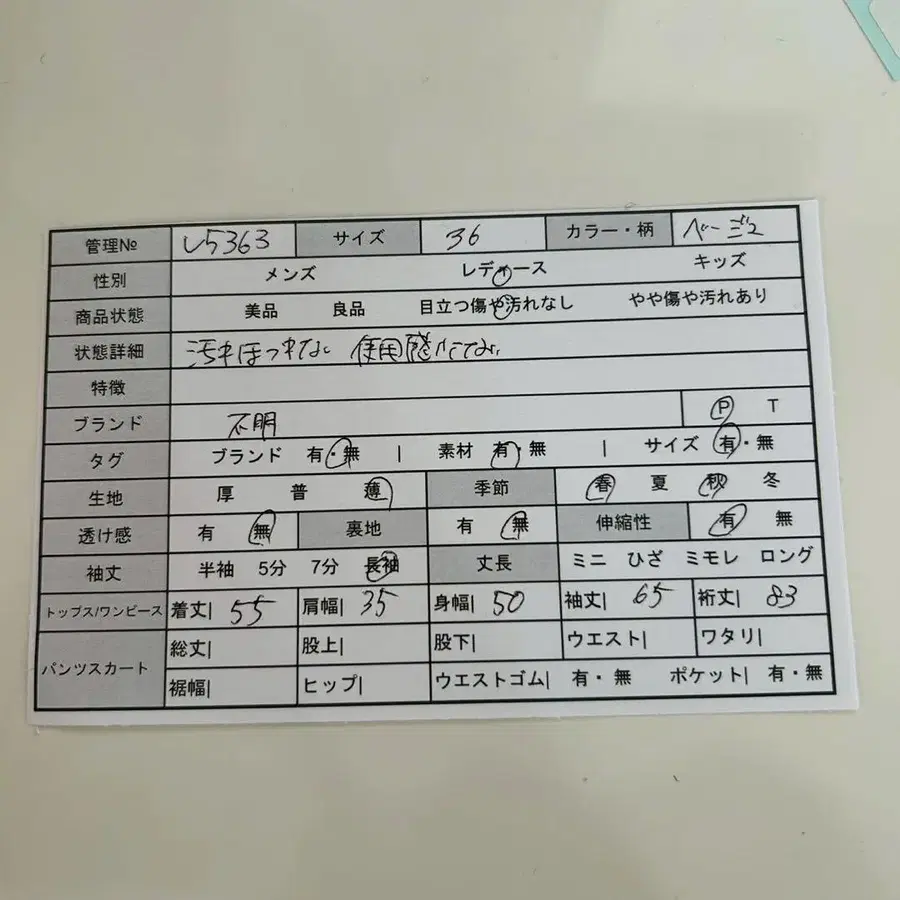 管理№ U5363 サイズ 36 カラー・柄 ベージュ
性別 メンズ レディース キッズ
商品状態 美品 良品 目立つ傷や汚れなし やや傷や汚れあり
状態詳細 汚れほつれなし 使用感
特徴
ブランド 不明 P T
タグ ブランド 有・無 | 素材 有・無 | サイズ 有・無
生地 厚 普 薄 季節 春 夏 秋 冬
透け感 有 無 裏地 有 無 伸縮性 有 無
袖丈 半袖 5分 7分 長袖 丈長 ミニ ひざ ミモレ ロング
トップス/ワンピース 着丈| 55 肩幅| 35 身幅| 50 袖丈| 65 裄丈| 83
パンツスカート 総丈| 股上| 股下| ウエスト| ワタリ|
裾幅| ヒップ| ウエストゴム| 有・無 ポケット| 有・無